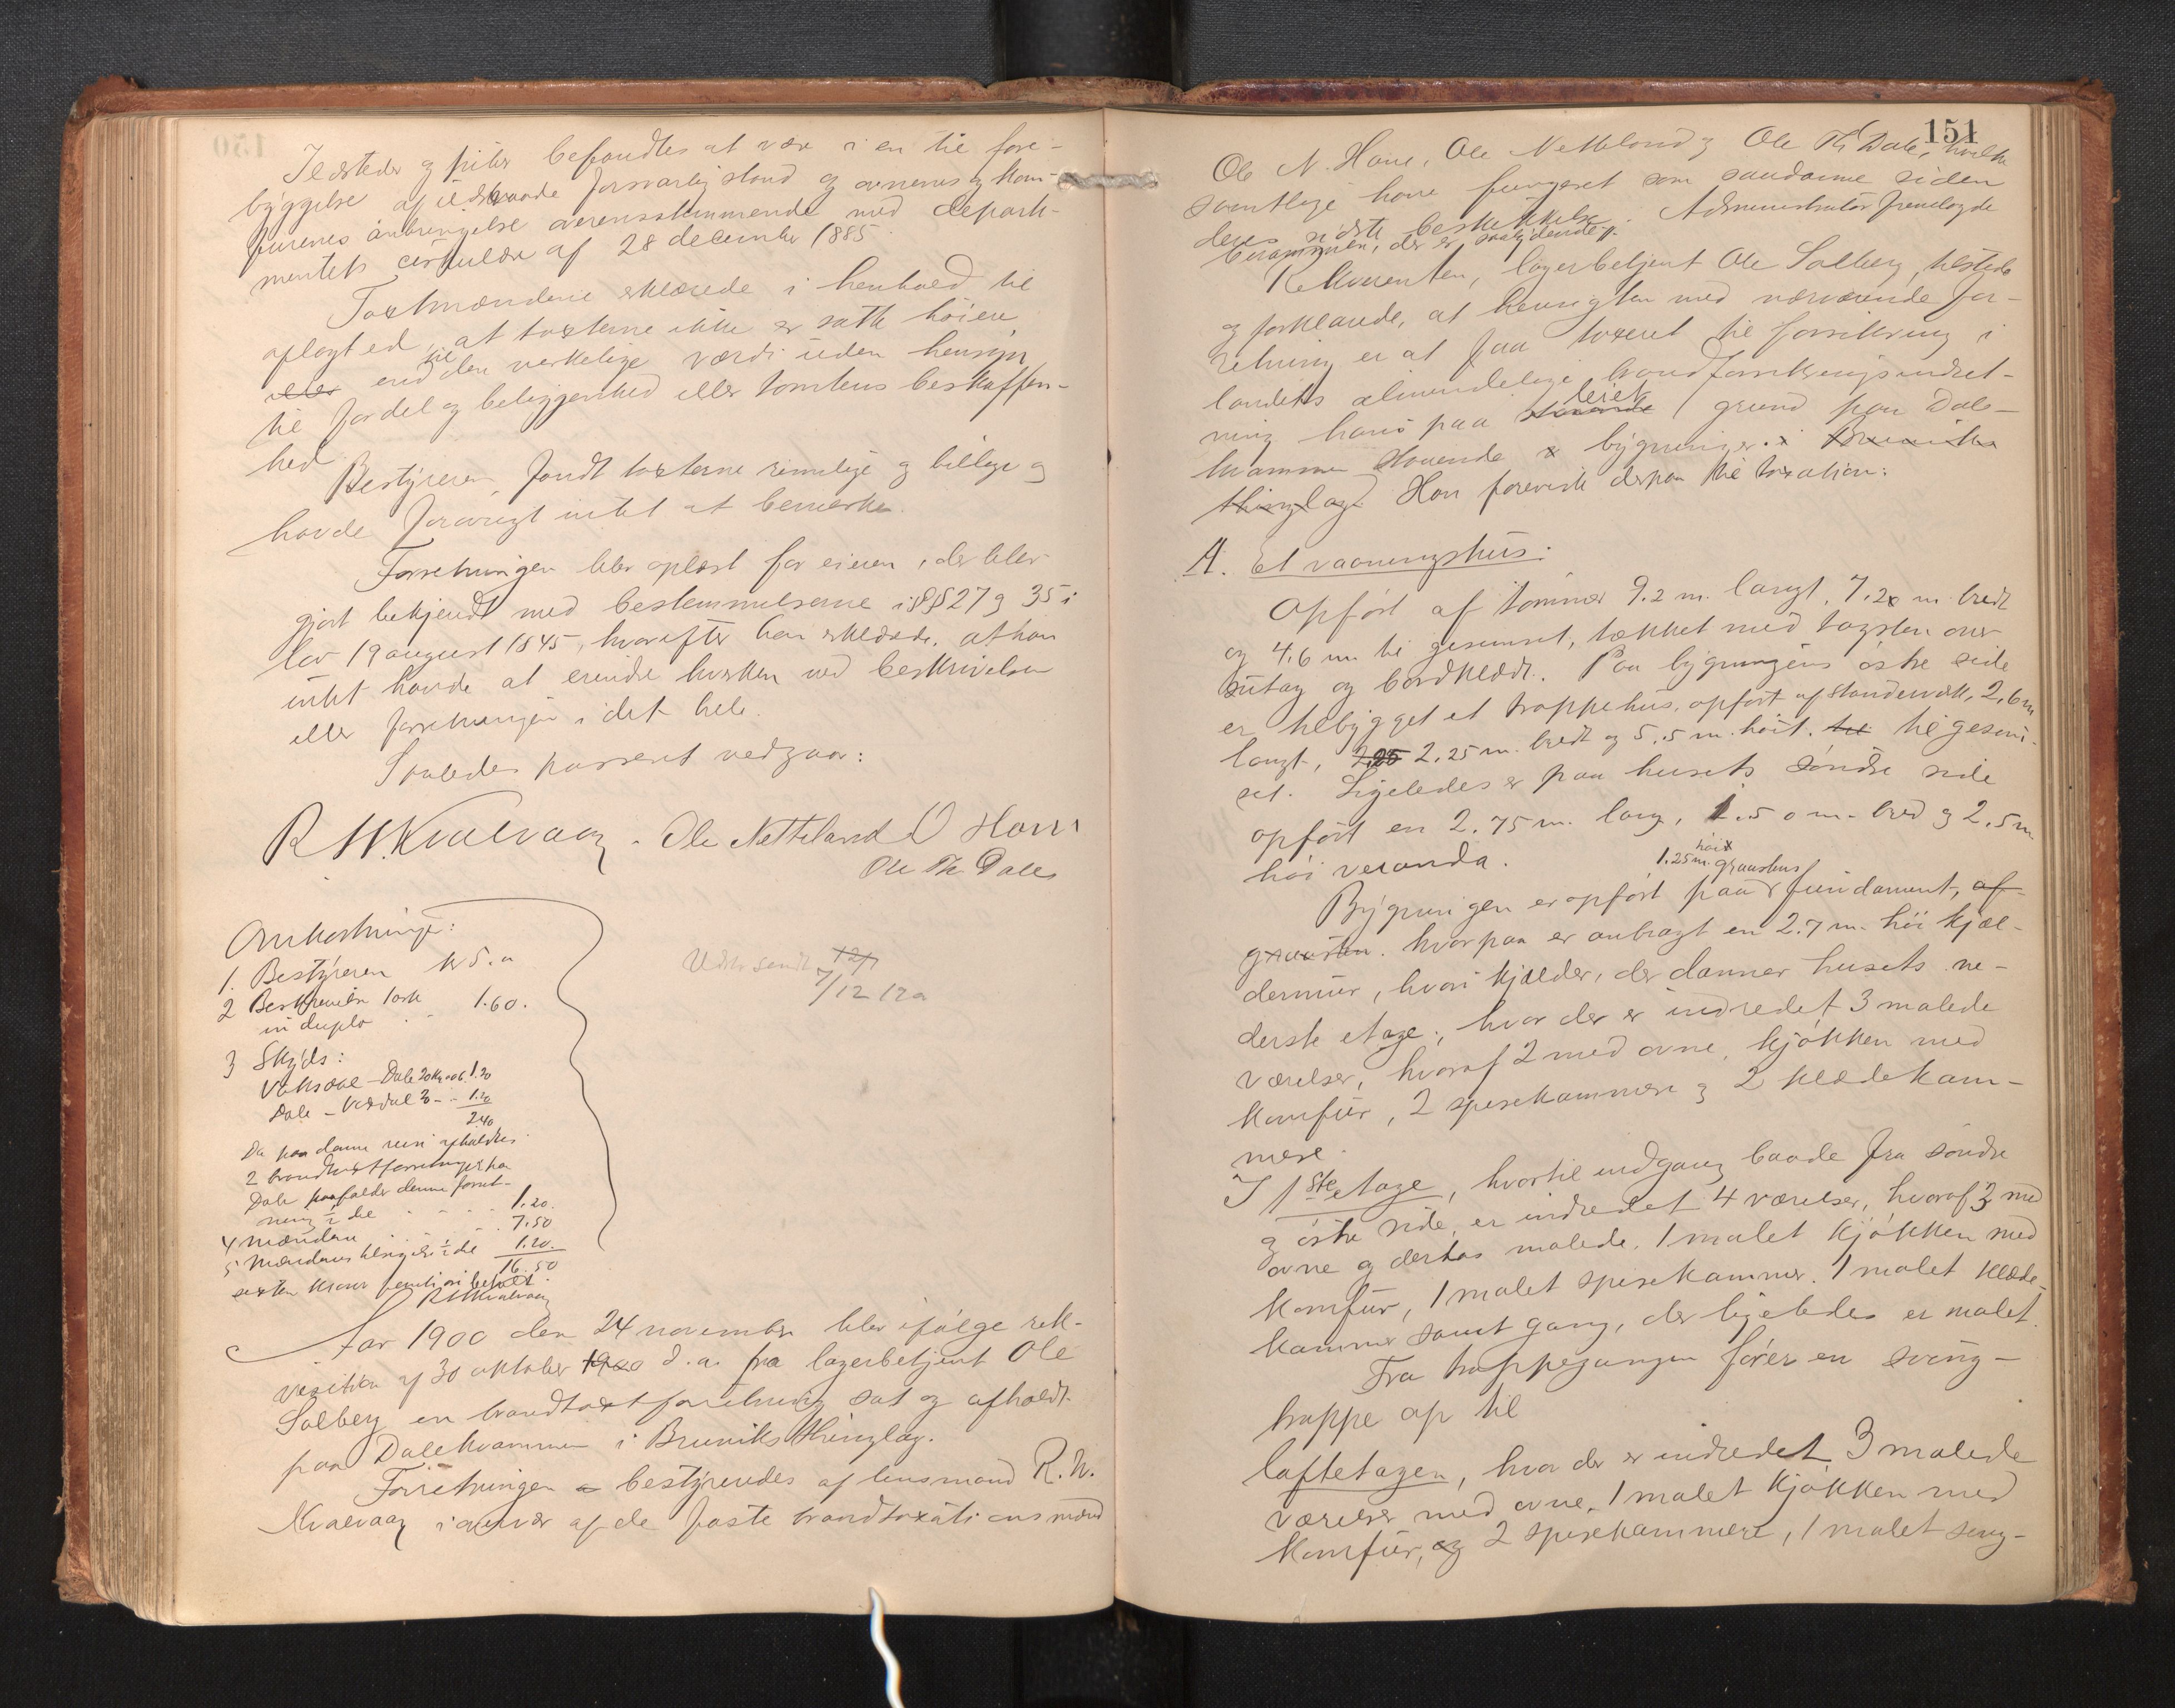 Ildsteder og piber befandtes at være i en til fore-
byggelse af ildsvaade forsvarlig stand og ovnenes og kom-
furenes anbringelse overensstemmende med departe-
mentets cirkulære af 28 december 1885.
Taxtmændene erklærede i henhold til
aflagt ed, at taxterne ikke er satte høiere
eller end til den verkelige værdi uden hensyn
til fordel og beliggenhed eller tomtens beskaffen-
hed.
Bestyreren fandt taxterne rimelige og billige og
havde forøvrigt intet at bemerke.
Forretningen blev oplæst for eieren, der blev
gjort bekjendt med bestemmelserne i §§ 27 og 35 i
lov 19 august 1845, hvorefter han erklærede, at han
intet havde at erindre hverken ved beskrivelsen
eller forretningen i det hele.
Saaledes passeret vedgaar:
R. N. Kvalvaag. Ole Netteland O Hove
Ole Th Dale
Omkostninger:
1. Bestyreren kr 5.00
2 Beskrivelse 1 ark
in duplo . . 1.60.
3 Skyds:
Vaksdal - Dale 20 Km a 06. 1.20
Dale - Vaksdal 20 - . 1.20
2.40
Da paa denne reise afholdtes
2 brandtaxtforretninger paa
Dale paafalder denne forret-
ning ½ del . . . . 1.20.
4 Mændene . . . . 7.50
5 Mændenes tilsigelse ½ del 1.20.
16.50
sexten kroner femti øre betalt.
R N Kvalvaag
Udskr sendt 12/1
7/12 1200
Aar 1900 den 24 november blev ifølge rek-
visition af 30 oktober 1900 d. a. fra lagerbetjent Ole
Solberg en brandtaxtforretning sat og afholdt
paa Dalekvammen i Bruviks thinglag.
Forretningen bestyredes af lensmand R. N.
Kvalvaag i overvær af de faste brandtaxationsmænd
151
Ole N. Hove, Ole Netteland og Ole Th Dale, hvilke
samtlige have fungeret som saadanne siden
deres sidste beskikkelse. Administrator fremlagde
berammelsen, der er saalydende,,
Rekvirenten, lagerbetjent Ole Solberg, tilstede
og forklarede, at hensigten med nærværende for-
retning er at faa taxeret til forsikring i
landets almindelige brandforsikringsindret-
ning hans paa leiet grund paa Dale-
kvammen staaende bygninger. i Bruviks
thinglag. Han foreviste derpaa til taxation:
A. Et vaaningshus:
Opført af tømmer 9.2 m. langt, 7.20 m. bredt
og 4.6 m. til gesimset, tækket med tagsten over
sutag og bordklædt. Paa bygningens østre side
er tilbygget et trappehus, opført af standerverk, 2.6 m
langt, 2.25 2.25 m. bredt og 5.5 m. høit. til til gesim-
set. Ligeledes er paa husets søndre side
opført en 2.75 m. lang, 1.50 m. bred og 2.5 m
høi veranda.
Bygningen er opført paa 1.25 m. høit graastens fundament, af
graasten. hvorpaa er anbragt en 2.7 m. høi kjæl-
dermur, hvori kjælder, der danner husets ne-
derste etage, hvor der er indredet 3 malede
værelser, hvoraf 2 med ovne, kjøkken med
komfur, 2 spisekammere og 2 klædekam-
mere.
I 1ste etage, hvortil indgang baade fra søndre
og østre side, er indredet 4 værelser, hvoraf 3 med
ovne og derhos malede, 1 malet kjøkken med
komfur, 1 malet spisekammer, 1 malet klæde-
kammer samt gang, der ligeledes er malet.
Fra trappegangen fører en sving-
trappe op til
loftetagen, hvor der er indredet 3 malede
værelser med ovne, 1 malet kjøkken med
komfur, og 2 spisekammere, 1 malet seng-